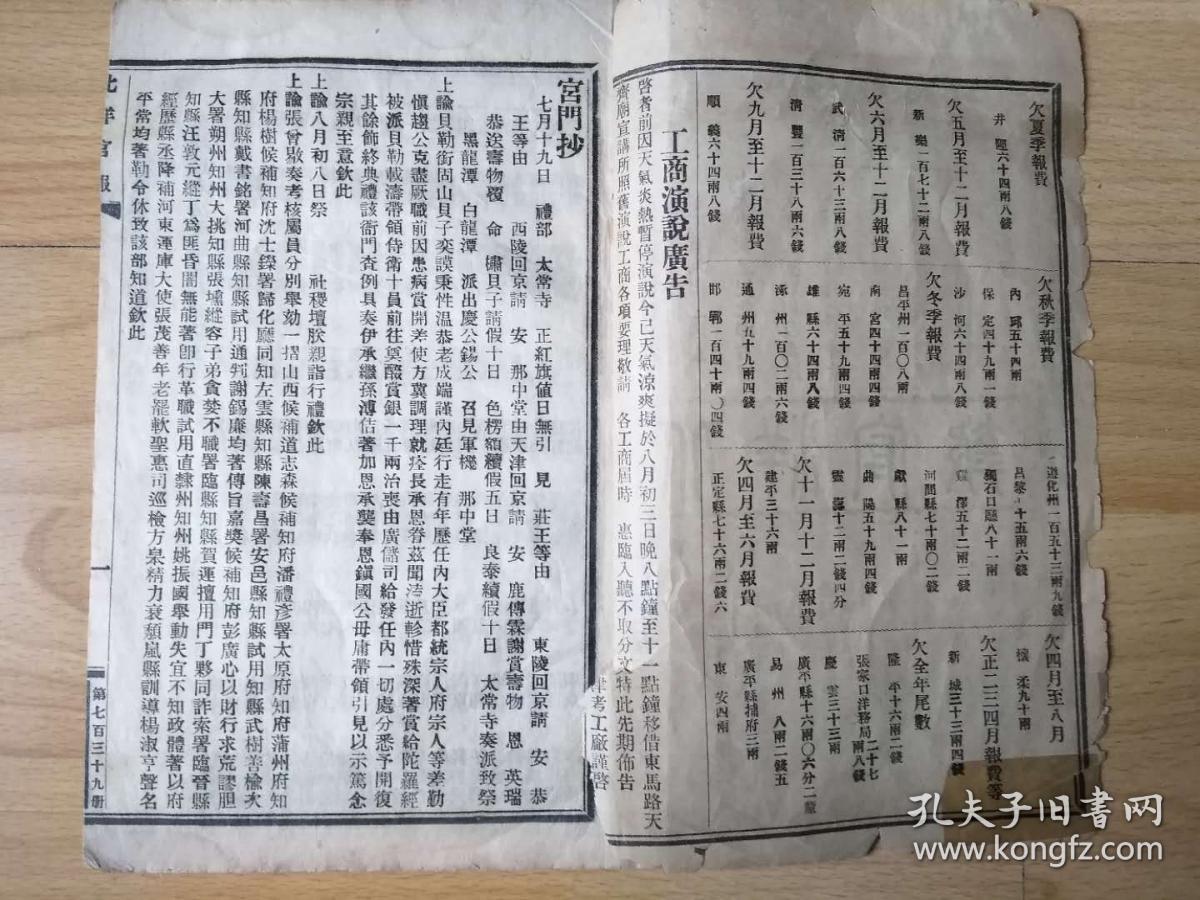 欠夏季報費
井陘六十四兩八錢
欠五月至十二月報費
新樂一百七十二兩八錢
欠六月至十二月報費
武清一百六十三兩八錢
清豐一百三十八兩六錢
欠九月至十二月報費
順義六十四兩八錢
欠秋季報費
內邱五十四兩
保定四十九兩一錢
沙河六十四兩八錢
欠冬季報費
昌平州一百〇八兩
南宮四十四兩四錢
宛平五十九兩四錢
雄縣六十四兩八錢
涿州一百〇二兩六錢
通州五十九兩四錢
邯鄲一百四十兩〇四錢
遵化州一百五十三兩九錢
呂黎十五兩六錢
獨石口廳八十一兩
五十二兩二錢
河間縣七十兩〇二錢
獻縣八十一兩
曲陽五十九兩四錢
靈壽十二兩二錢四分
欠十一月十二月報費
建平三十六兩
欠四月至六月報費
正定縣七十六兩二錢六
欠四月至八月
懷柔九十兩
欠正二三四月報費等
新城三十三兩四錢
欠全年尾數
隆平十六兩二錢
張家口洋務局二十七兩八錢
慶雲三十三兩
廣平縣十六兩〇六分二釐
易州八兩二錢五
廣平縣捕府三兩
東安四兩
工商演說廣告
啓者前因天氣炎熱暫停演說今已天氣涼爽擬於八月初三日晚八點鐘至十一點鐘移借東馬路天
齊廟宣講所照舊演說工商各項要理敬請 各工商屆時 惠臨入聽不取分文特此先期佈告
津考工廠謹啓
宮門抄
七月十九日 禮部 太常寺 正紅旗值日無引 見 莊王等由 東陵回京請 安 恭
王等由 西陵回京請 安 那中堂由天津回京請 安 鹿傳霖謝賞壽物 恩 英瑞
恭送壽物覆 命 櫹貝子請假十日 色楞額續假五日 良泰續假十日 太常寺奏派致祭
黑龍潭 白龍潭 派出慶公錫公 召見軍機 那中堂
上諭貝勒銜固山貝子奕謨秉性溫恭老成端謹內廷行走有年歷任內大臣都統宗人府宗人等差勤
慎趨公克盡厥職前因患病賞開差使方冀調理就痊長承恩眷茲聞溘逝軫惜殊深著賞給陀羅經
被派貝勒載濤帶領侍衛十員前往奠醊賞銀一千兩治喪由廣儲司給發任內一切處分悉予開復
其餘飾終典禮該衙門查例具奏伊承繼孫溥佶著加恩承襲奉恩鎮國公毋庸帶領引見以示篤念
宗親至意欽此
上諭八月初八日祭 社稷壇朕親詣行禮欽此
上諭張曾敭奏考核屬員分別舉劾一摺山西候補道志森候補知府潘禮彥署太原府知府蒲州府知
府楊樹候補知府沈士鑅署歸化廳同知左雲縣知縣陳壽昌署安邑縣知縣試用知縣武樹善楡次
縣知縣戴書銘署河曲縣知縣試用通判謝錫廉均著傳旨嘉獎候補知府彭廣心以財行求荒謬胆
大署朔州知州大挑知縣張壎縱容子弟貪婪不職署臨縣知縣賀運擅用門丁夥同詐索署臨晉縣
知縣汪敦元縱丁爲匪昏闇無能著卽行革職試用直隸州知州姚振國舉動失宜不知政體著以府
經歷縣丞降補河東運庫大使張茂善年老罷軟聖惠司巡檢方臬精力衰頹嵐縣訓導楊淑亨聲名
平常均著勒令休致該部知道欽此
北洋官報
一
第七百三十九册
孔夫子旧书网
www.kongfz.com